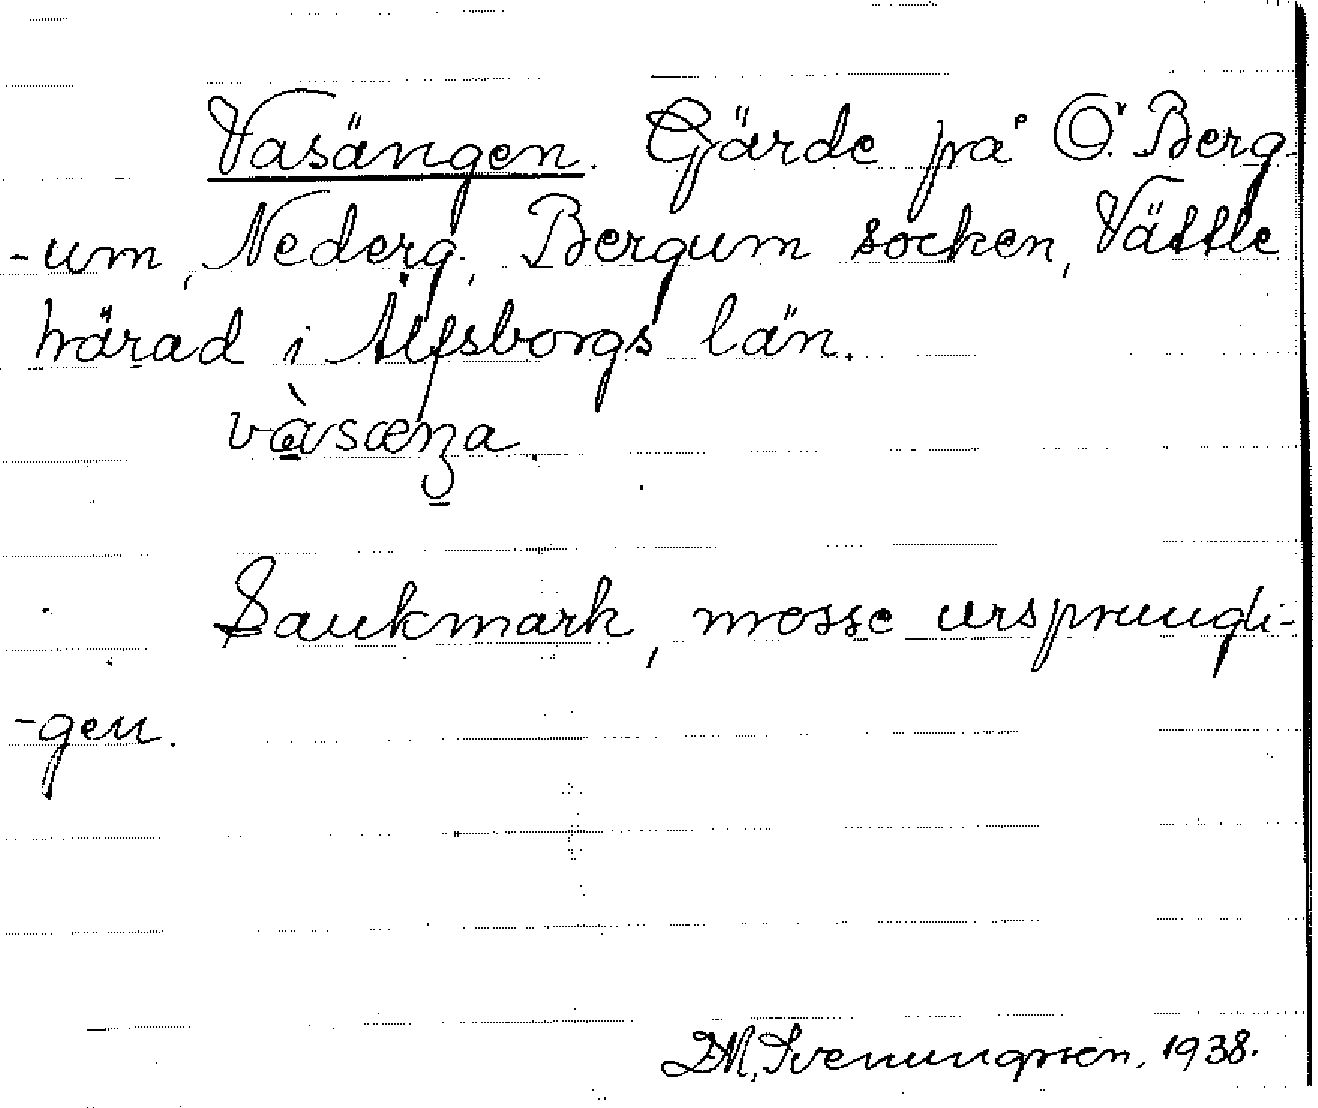 Vasängen. Gärde på Ö. Berg-
-um, Nederg., Bergum socken, Vättle
härad i Älfsborgs län.
vàsæŋa
Sankmark, mosse ursprungli-
-gen.
D.M. Svenungsson, 1938.